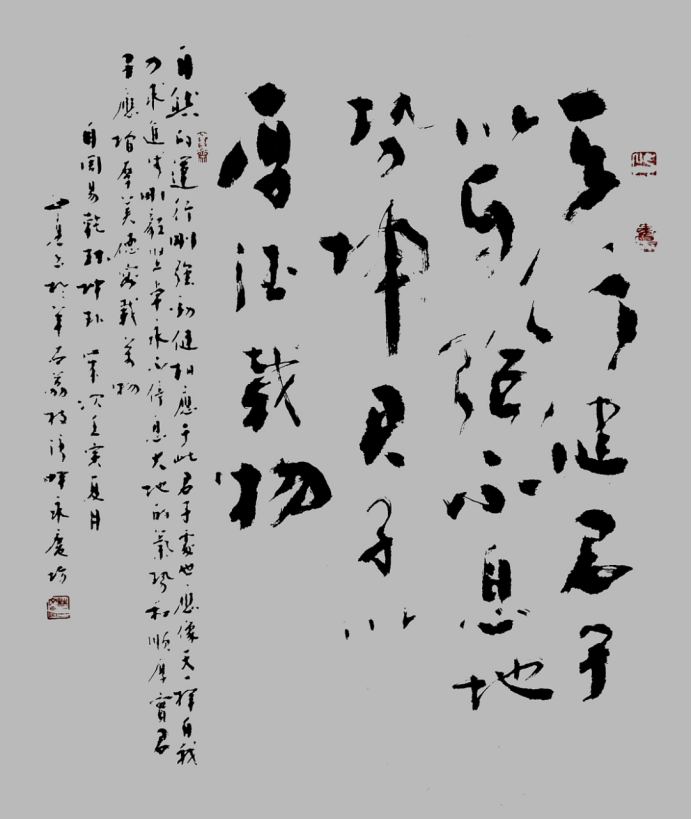 天行健君子
以自强不息地
势坤君子以
厚德载物
自然的運行剛强勁健相應于此君子處世應像天一樣自我
力求進步剛毅卓永不停息大地的氣勢和順厚實君
子應增厚美德容載萬物
自周易乾卦坤卦 歲次壬寅夏月